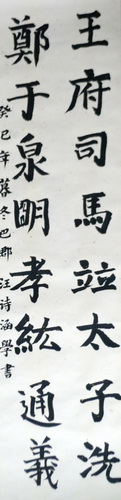 王府司馬竝太子洗
鄭于泉明孝紘通義
癸巳年暮冬巴郡汪诗涵學書